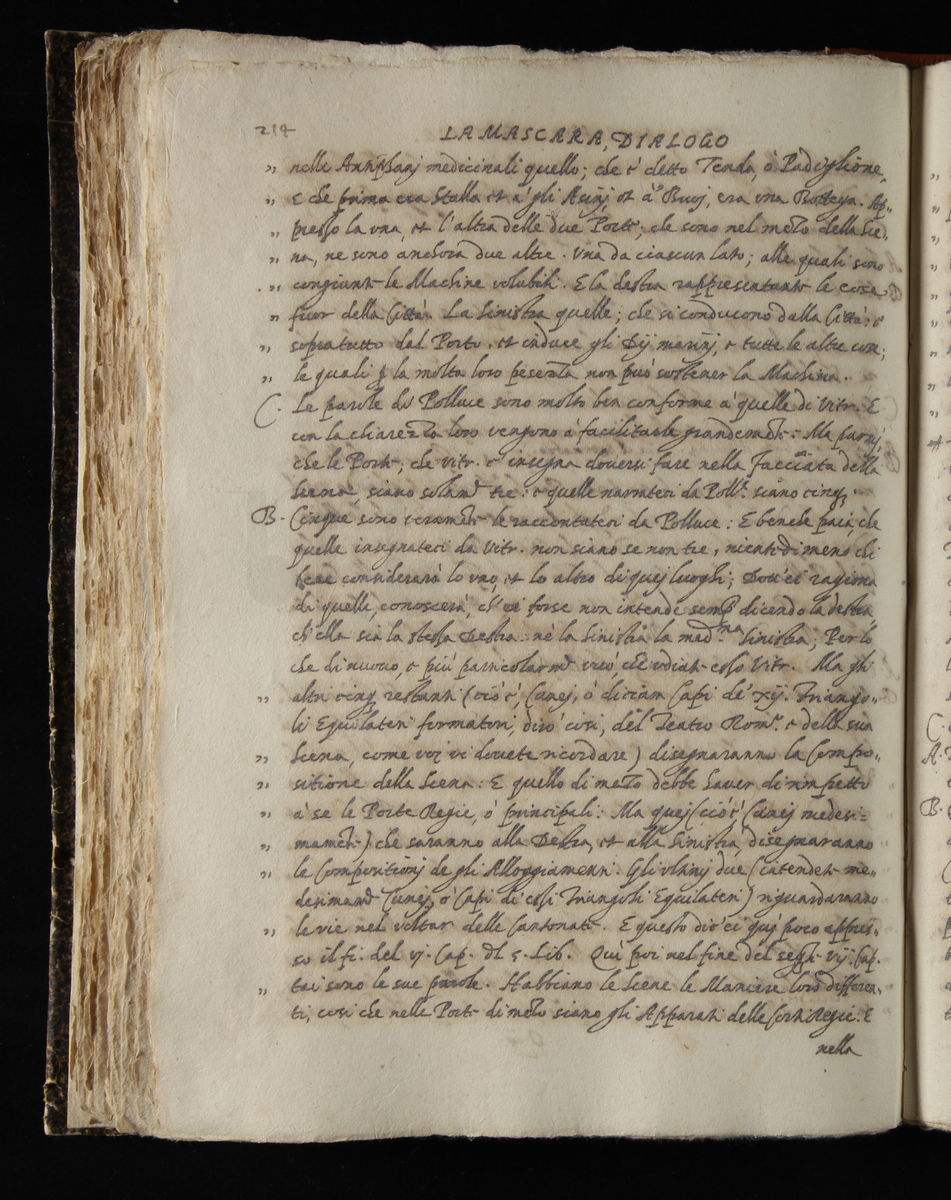 214
LA MASCARA, DIALOGO
„ nelle medicinali quello; che è detto Tenda, ò Padiglione,
„ E che prima era Stalla et à gli Asinj et à Buoj, era vna Bottega. Ap-
„ presso la vna, et l'altra delle due Porte; che sono nel mezo della Sce-
„ na, ne sono anchora due altre. Vna da ciascun lato; alle quali sono
„ congiunte le Machine volubili. E la destra rappresentante le cose
„ fuor della Città. La Sinistra quelle; che si conducono dalla Città, e
„ sopratutto dal Porto, et induce gli Dij marinj, e tutte le altre cose;
„ le quali ꝑ la molta loro pesenza non può sostener la Machina.
C. Le parole di Polluce sono molto ben conforme à quelle di Vitr. E
con la chiarezza loro vengono à facilitarle grandemte: Ma parmj,
che le Porte; che Vitr. insegna doversi fare nella Facciata della
Scena, siano solamte tre: e quelle narrateci da Poll. siano cinq.
B. Cinque sono veramte le raccontateci da Polluce: E benche paia, che
quelle insegnateci da Vitr. non siano se non tre, nientedimeno chi
bene considerarà lo vno, et lo altro di quej luoghi; Dou' ei ragiona
di quelle, conoscerà, ch' ei forse non intende semp dicendo la destra
ch' ella sia la stessa Destra: nè la Sinistra la madma Sinistra; Per lo
che di nuouo, e più particolarmte vuò, che vdiate esso Vitr. Ma gli
„ altri cinq restanti (ciò è, Cunej, ò diciam Capi de' xij. Triango-
li Equilateri formatori, dirò così, del Teatro Romo. e della sua
„ Scena, come voi vi douete ricordare) disegnaranno la Compo-
„ sitione della Scena: E quello di mezo debbe hauer dirimpetto
„ à se le Porte Regie, ò principali: Ma quej (ciò è, Cunej medesi-
„ mamte) che saranno alla Destra, et alla Sinistra, disegnaranno
„ le Compositionj de gli Alloggiamenti. Gli vltimj due (intendete me-
desimamte Cunej, ò Capi di essi Triangoli Equilateri) riguardaranno
„ le vie nel voltar delle Cantonate. E questo dic' ei quj poco appres-
so il fi. del vj. Cap. dl 5. Lib. Quì poi nel fine del vij. Cap.
„ tai sono le sue parole. Habbiano le Scene le Maniere loro differen-
ti, così che nelle Porte di mezo siano gli Apparati delle Corti Regie. E
nella